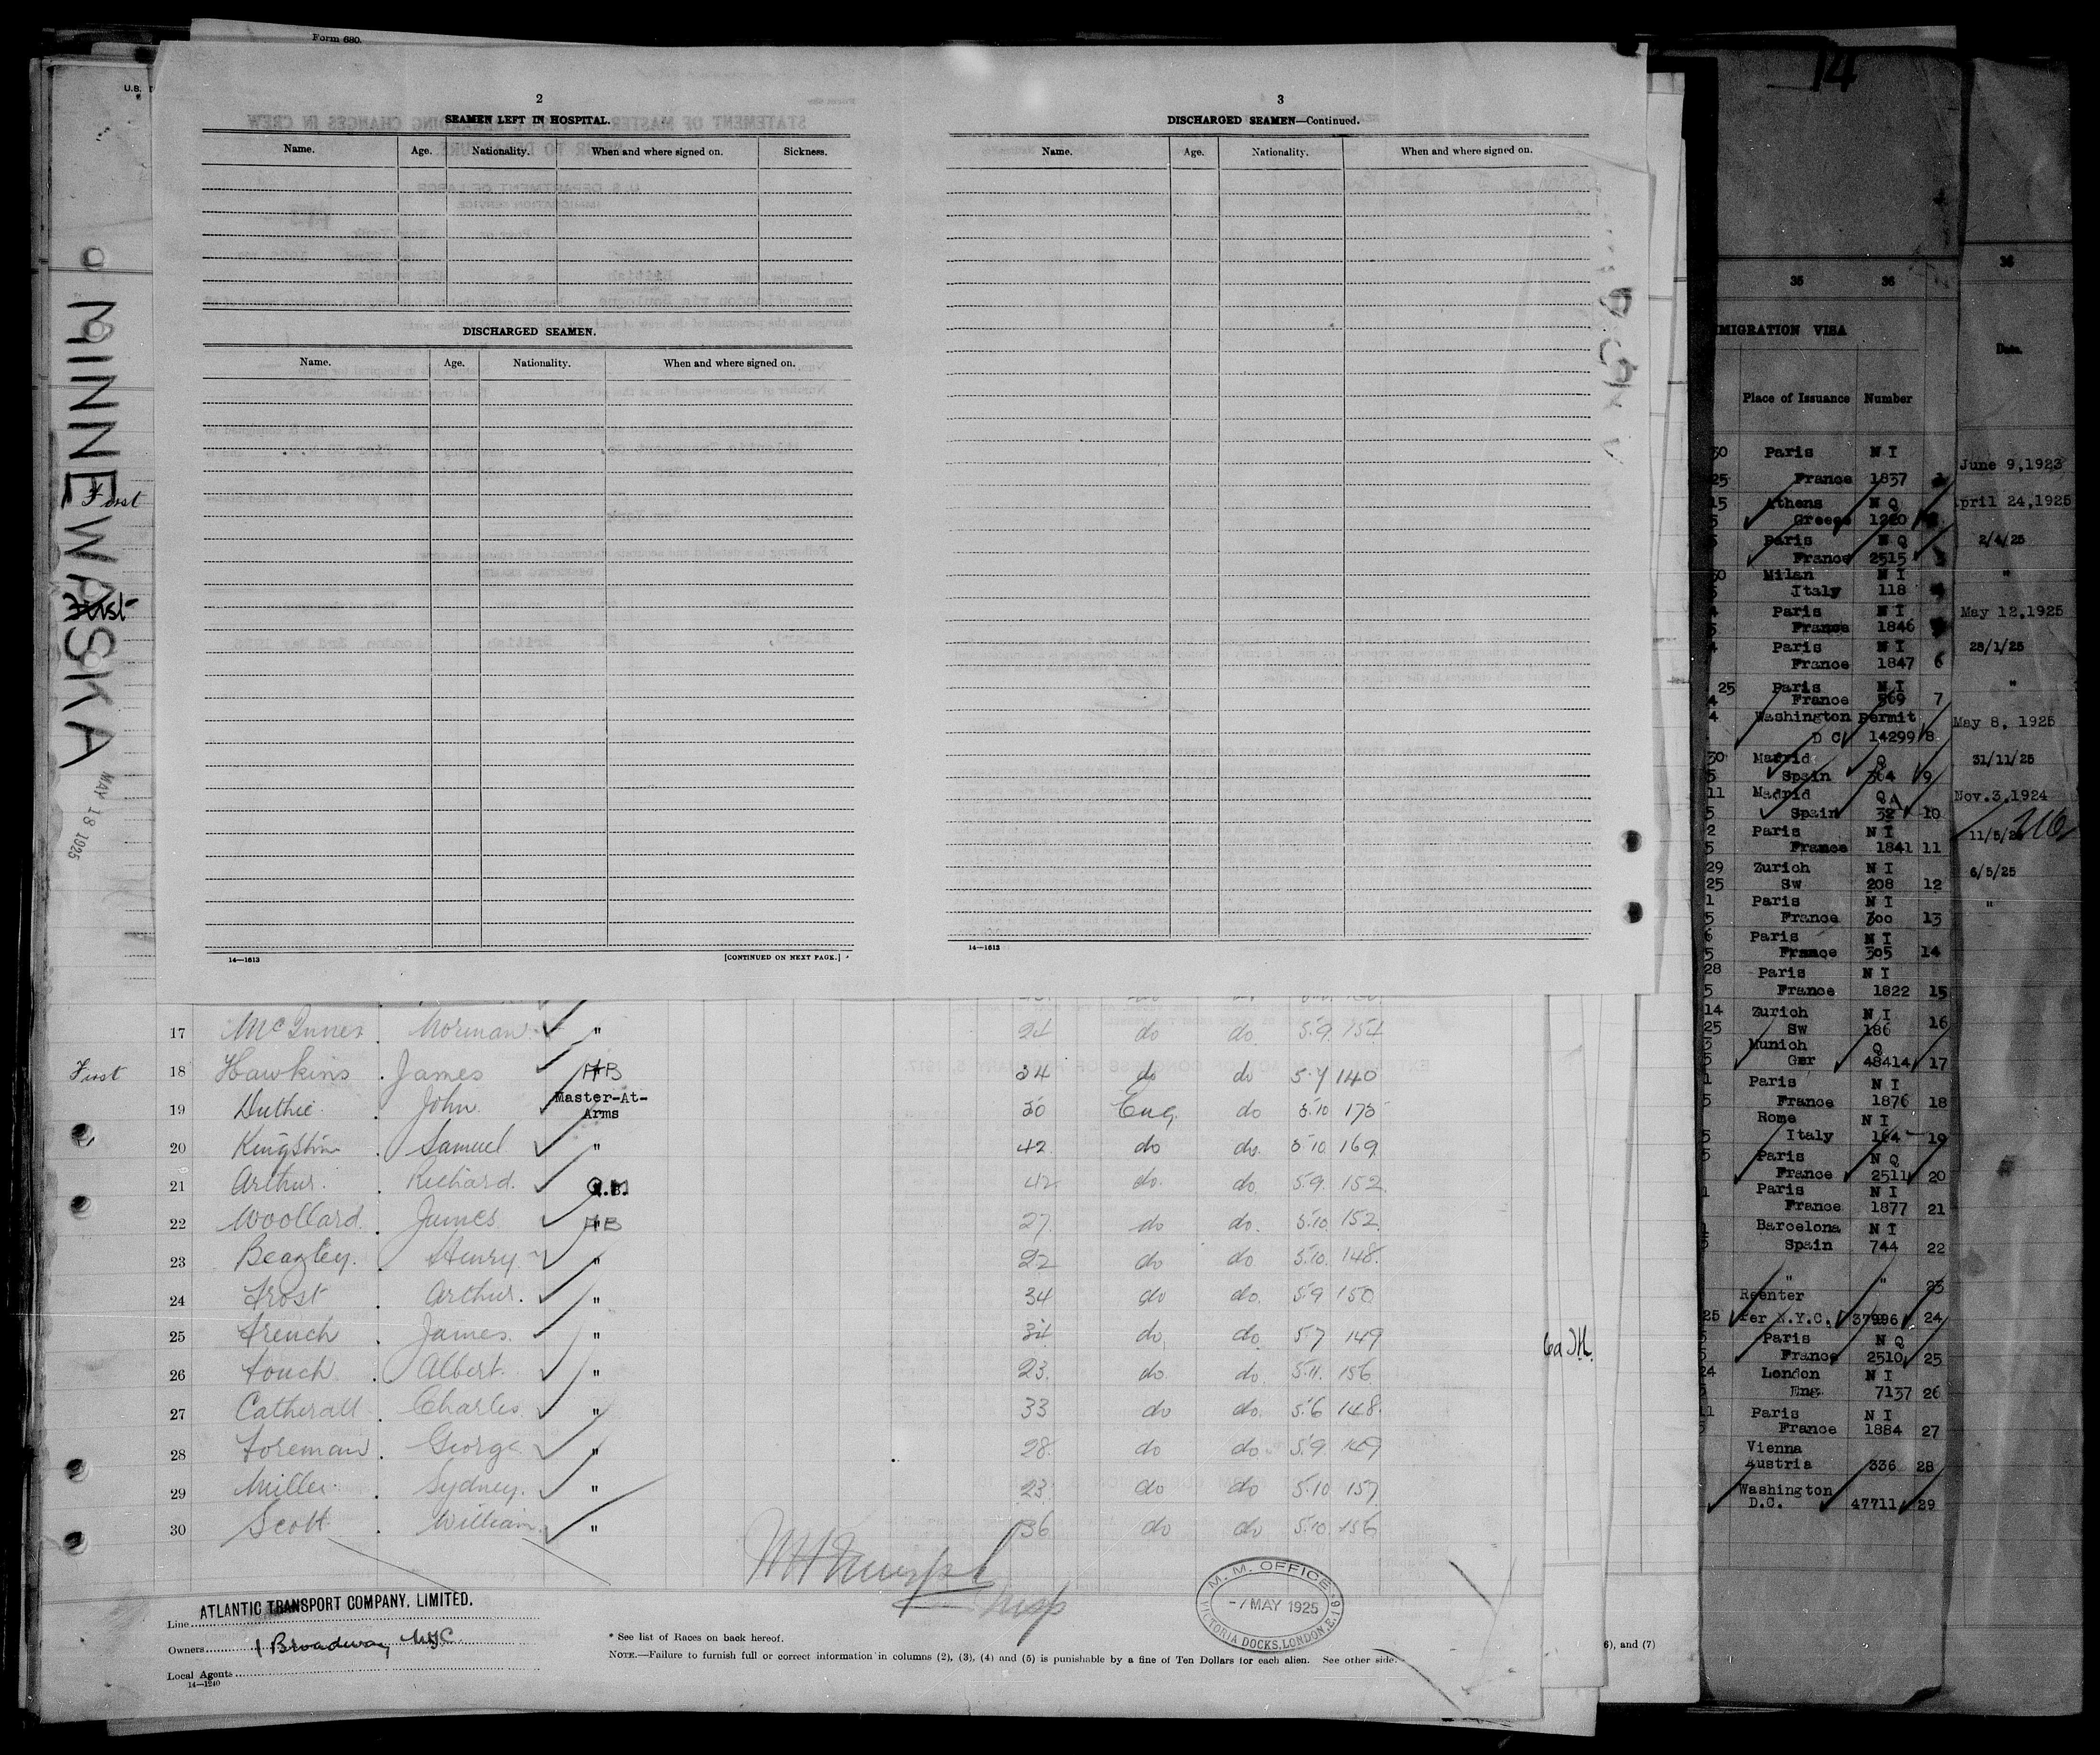 Form 680.
14
2
SEAMEN LEFT IN HOSPITAL.
Name. Age. Nationality. When and where signed on. Sickness.
DISCHARGED SEAMEN.
Name. Age. Nationality. When and where signed on.
14—1613 [CONTINUED ON NEXT PAGE.]
3
DISCHARGED SEAMEN—Continued.
Name. Age. Nationality. When and where signed on.
14—1613
MINNEWASKA
MAY 18 1925
First
First
17 McInnes Norman " 24 do do 5.9 154
First 18 Hawkins James AB 34 do do 5.7 140
19 Duthie John Master-At-Arms 50 Eng do 5.10 175
20 Kingston Samuel " 42 do do 5.10 169
21 Arthur Richard 42 do do 5.9 152
22 Woollard James AB 27 do do 5.10 152
23 Beazley Henry " 22 do do 5.10 148
24 Frost Arthur " 34 do do 5.9 150
25 French James " 34 do do 5.7 149
26 Touch Albert " 23 do do 5.11 156
27 Catherall Charles " 33 do do 5.6 148
28 Foreman George " 28 do do 5.9 149
29 Miller Sydney " 23 do do 5.10 157
30 Scott William " 36 do do 5.10 156
Line ATLANTIC TRANSPORT COMPANY, LIMITED.
Owners 1 Broadway NYC
Local Agents
14—1240
* See list of Races on back hereof.
NOTE.—Failure to furnish full or correct information in columns (2), (3), (4) and (5) is punishable by a fine of Ten Dollars for each alien. See other side.
M. M. OFFICE
-7 MAY 1925
VICTORIA DOCKS, LONDON, E.16
6), and (7)
35 36
MIGRATION VISA
Place of Issuance Number
Paris N I
France 1837
Athens N Q
Greece 1220
Paris N Q
France 2515
Milan N I
Italy 118
Paris N I
France 1846
Paris N I
France 1847 6
Paris N I
France 569 7
Washington Permit
D C 14299 8
Madrid Q
Spain 364 9
Madrid Q
Spain 32 10
Paris N I
France 1841 11
Zurich N I
Sw 208 12
Paris N I
France 300 13
Paris N I
France 305 14
Paris N I
France 1822 15
Zurich N I
Sw 186 16
Munich Q
Ger 48414 17
Paris N I
France 1876 18
Rome N I
Italy 164 19
Paris N Q
France 2511 20
Paris N I
France 1877 21
Barcelona N I
Spain 744 22
" " 23
Reenter
Per N.Y.C. 37996 24
Paris N Q
France 2510 25
London N I
Eng. 7137 26
Paris N I
France 1884 27
Vienna
Austria 336 28
Washington
D.C. 47711 29
36
Date.
June 9,1923
April 24,1925
2/4/25
"
May 12,1925
28/1/25
"
May 8, 1925
31/11/25
Nov.3,1924
6/5/25
"